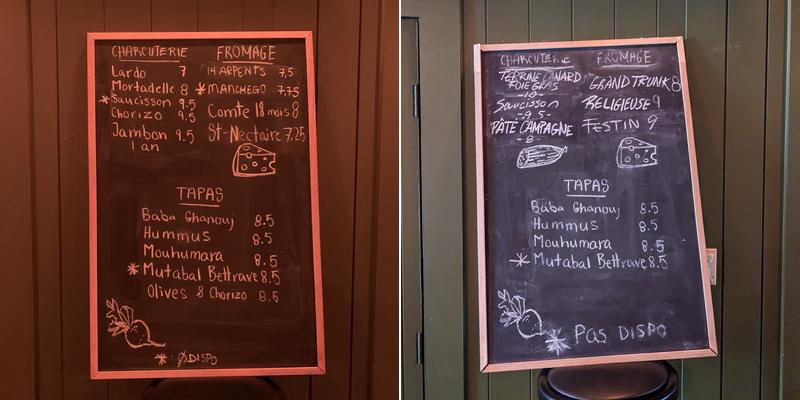 CHARCUTERIE FROMAGE
Lardo 7 14 ARPENTS 7,5
Mortadelle 8 * MANCHEGO 7.75
* Saucisson 9.5 Comte 18 mois 8
Chorizo 9.5 St-Nectaire 7.25
Jambon 9.5
1 an
TAPAS
Baba Ghanouj 8.5
Hummus 8.5
Mouhumara 8.5
* Mutabal Bettrave 8.5
Olives & Chorizo 8.5
* : ØDISPO
CHARCUTERIE FROMAGE
TERRINE CANARD
FOIE GRAS GRAND TRUNK 8
-10-
Saucisson RELIGIEUSE 9
-9.5-
PÂTÉ CAMPAGNE FESTIN 9
-8-
TAPAS
Baba Ghanouj 8.5
Hummus 8.5
Mouhumara 8.5
* Mutabal Bettrave 8.5
* PAS DISPO